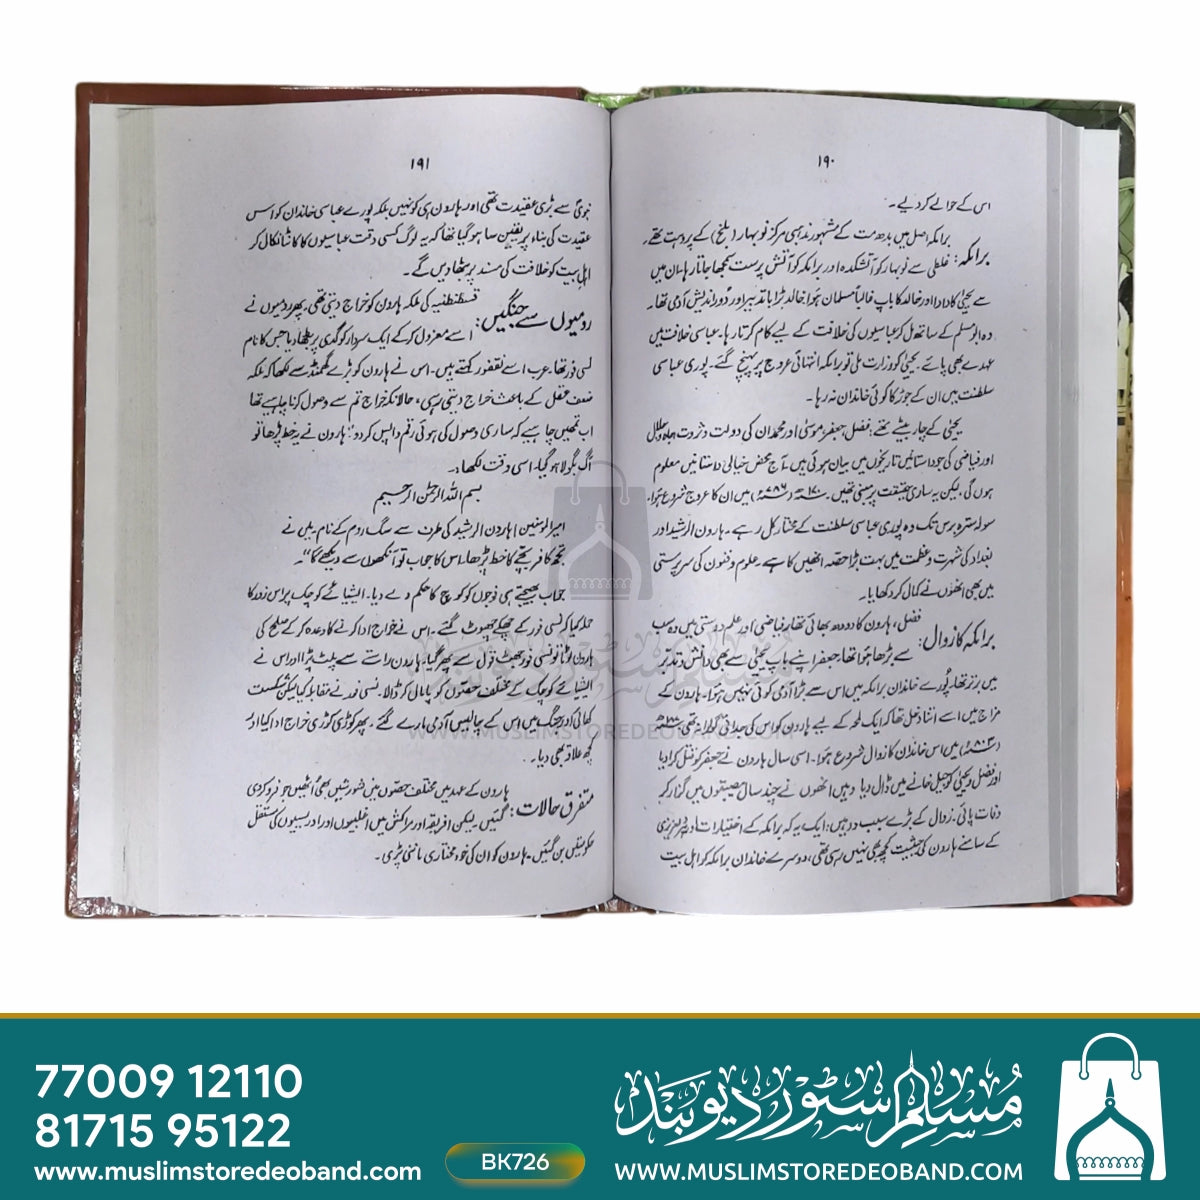 ۱۹۰
اس کے حوالے کر دیے۔
برامکہ: برامکہ اصل میں بدھ مت کے مشہور مذہبی مرکز نوبہار (بلخ) کے پروہت تھے۔
غلطی سے نوبہار کو آتشکدہ اور برامکہ کو آتش پرست سمجھا جاتا رہا۔ ان میں
سے یحییٰ کا دادا اور خالد کا باپ غالباً مسلمان ہوا۔ خالد بڑا با تدبیر اور دُور اندیش آدمی تھا۔
وہ ابو مسلم کے ساتھ مل کر عباسیوں کی خلافت کے لیے کام کرتا رہا۔ عباسی خلافت میں
عہدے بھی پائے۔ یحییٰ کو وزارت ملی تو برامکہ انتہائی عروج پر پہنچ گئے۔ پوری عباسی
سلطنت میں ان کے جوڑ کا کوئی خاندان نہ رہا۔
یحییٰ کے چار بیٹے تھے: فضل، جعفر، موسیٰ اور محمد ان کی دولت و ثروت، جاہ و جلال
اور فیاضی کی جو داستانیں تاریخوں میں بیان ہوئی ہیں۔ آج محض خیالی داستانیں معلوم
ہوں گی، لیکن یہ ساری حقیقت پر مبنی تھیں۔ ۱۷۰ھ (۷۸۶ء) میں ان کا عروج شروع ہوا۔
سولہ سترہ برس تک وہ پوری عباسی سلطنت کے مختار کل رہے۔ ہارون الرشید اور
بغداد کی شہرت و عظمت میں بہت بڑا حصہ انھیں کا ہے، علوم و فنون کی سرپرستی
میں بھی انھوں نے کمال کر دکھایا۔
برامکہ کا زوال: فضل، ہارون کا دودھ بھائی تھا، فیاضی اور علم دوستی میں وہ سب
سے بڑھا ہوا تھا، جعفر اپنے باپ یحییٰ سے بھی دانش و تدبر
میں برتر تھا۔ پُورے خاندان برامکہ میں اس سے بڑا آدمی کوئی نہیں ہوا۔ ہارون کے
مزاج میں اسے اتنا دخل تھا کہ ایک لمحہ کے لیے ہارون کو اس کی جدائی گوارا نہ تھی،
(۸۰۳ء) میں اس خاندان کا زوال شروع ہوا۔ اسی سال ہارون نے جعفر کو قتل کرا دیا
اور فضل و یحییٰ کو جیل خانے میں ڈال دیا۔ وہیں انھوں نے چند سال مصیبتوں میں گذار کر
وفات پائی۔ زوال کے بڑے سبب دو ہیں: ایک یہ کہ برامکہ کے اختیارات اور ہر دلعزیزی
کے سامنے ہارون کی حیثیت کچھ بھی نہیں رہی تھی، دوسرے خاندان برامکہ کو اہل بیت
۱۹۱
نبویؐ سے بڑی عقیدت تھی اور ہارون ہی کو نہیں بلکہ پورے عباسی خاندان کو اس
عقیدت کی بناء پر یقین سا ہو گیا تھا کہ یہ لوگ کسی وقت عباسیوں کا کانٹا نکال کر
اہل بیت کو خلافت کی مسند پر بٹھا دیں گے۔
رومیوں سے جنگیں: قسطنطنیہ کی ملکہ ہارون کو خراج دیتی تھی، پھر رومیوں نے
اسے معزول کر کے ایک سردار کو گدی پر بٹھا دیا جس کا نام
نسی فور تھا۔ عرب اسے نقفور کہتے ہیں۔ اس نے ہارون کو بڑے گھمنڈ سے لکھا کہ ملکہ
ضعف عقل کے باعث خراج دیتی رہی، حالانکہ خراج تم سے وصول کرنا چاہیے تھا
اب تمھیں چاہیے کہ ساری وصول کی ہوئی رقم واپس کر دو۔" ہارون نے یہ خط پڑھا تو
آگ بگولا ہو گیا۔ اسی وقت لکھا:۔
بسم اللہ الرحمٰن الرحیم
امیر المومنین ہارون الرشید کی طرف سے سگ روم کے نام۔ میں نے
تجھ کافر بچے کا خط پڑھا، اس کا جواب تو آنکھوں سے دیکھے گا"۔
جواب بھیجتے ہی فوجوں کو کوچ کا حکم دے دیا۔ ایشیائے کوچک پر اس زور کا
حملہ کیا کہ نسی فور کے چھکے چھوٹ گئے۔ اس نے خراج ادا کرنے کا وعدہ کر کے صلح کی
ہارون لوٹا تو نسی فور جھٹ قول سے پھر گیا۔ ہارون راستے سے پلٹ پڑا اور اس نے
ایشیائے کوچک کے مختلف حصوں کو پامال کر ڈالا۔ نسی فور نے مقابلہ کیا لیکن شکست
کھائی اور جنگ میں اس کے چالیس آدمی مارے گئے۔ پھر کوڑی کوڑی خراج ادا کیا اور
کچھ علاقہ بھی دیا۔
متفرق حالات: ہارون کے عہد میں مختلف حصوں میں شورشیں بھی اُٹھیں جو فرو کر دی
گئیں۔ لیکن افریقہ اور مراکش میں اغلبیوں اور ادریسیوں کی مستقل
حکومتیں بن گئیں۔ ہارون کو ان کی خود مختاری ماننی پڑی۔
مسلم سٹور دیوبند
WWW.MUSLIMSTOREDEOBAND.COM
77009 12110
81715 95122
www.muslimstoredeoband.com
BK726
مسلم سٹور دیوبند
WWW.MUSLIMSTOREDEOBAND.COM